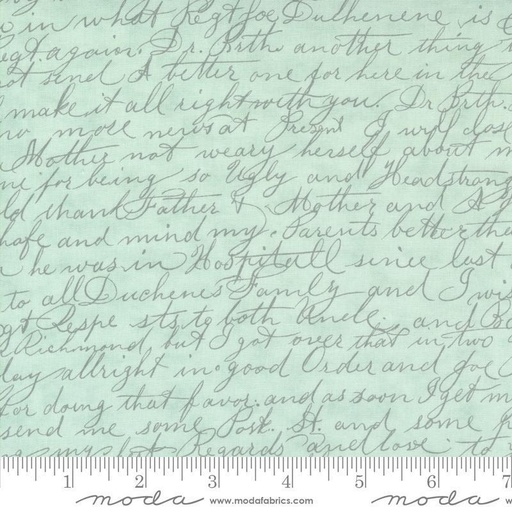 in what Regt Joe Duchenene is
Regt again. Dr. Brth another thing
not send A better one for here in the
make it all right with you. Dr Brth.
no more news at Prezent I will close
Mother not weary herself about m
me for being so Ugly and Headstrong
old thank Father & Mother and A
hafe and mind my Parents better the
he was in Hospitall since last
to all Duchenes Family and I wis
Respe sts to both Uncle and
Richmond but I got over that in two
day allright in good Order and Joe
for doing that favor and as soon I get m
send me some Post. St. and some
my Regards and love to
1 2 3 4 5 6 7
moda www.modafabrics.com moda